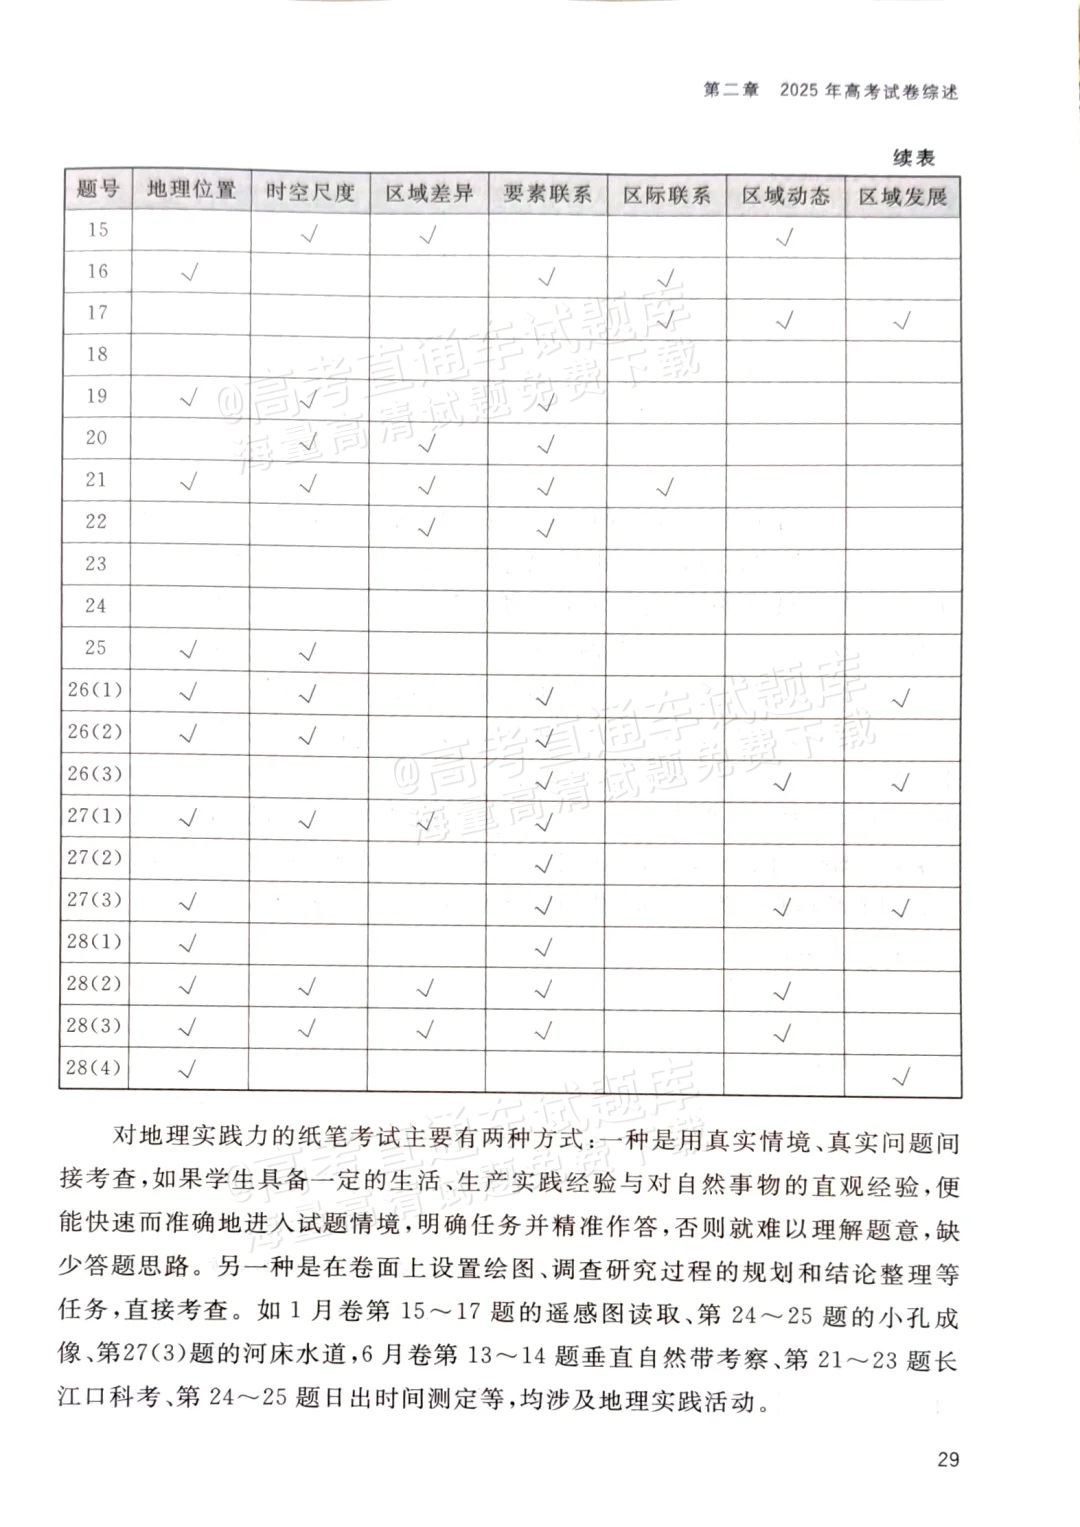 第二章 2025年高考试卷综述
续表
题号 地理位置 时空尺度 区域差异 要素联系 区际联系 区域动态 区域发展
15 √ √ √
16 √ √ √
17 √ √ √
18
19 √ √ √
20 √ √ √
21 √ √ √ √ √
22 √ √
23
24
25 √ √
26(1) √ √ √ √
26(2) √ √ √
26(3) √ √ √
27(1) √ √ √ √
27(2) √
27(3) √ √ √ √
28(1) √ √
28(2) √ √ √ √ √
28(3) √ √ √ √ √
28(4) √ √
@高考直通车试题库
海量高清试题免费下载
@高考直通车试题库
海量高清试题免费下载
@高考直通车试题库
海量高清试题免费下载
对地理实践力的纸笔考试主要有两种方式:一种是用真实情境、真实问题间
接考查,如果学生具备一定的生活、生产实践经验与对自然事物的直观经验,便
能快速而准确地进入试题情境,明确任务并精准作答,否则就难以理解题意,缺
少答题思路。另一种是在卷面上设置绘图、调查研究过程的规划和结论整理等
任务,直接考查。如1月卷第15～17题的遥感图读取、第24～25题的小孔成
像、第27(3)题的河床水道,6月卷第13～14题垂直自然带考察、第21～23题长
江口科考、第24～25题日出时间测定等,均涉及地理实践活动。
29